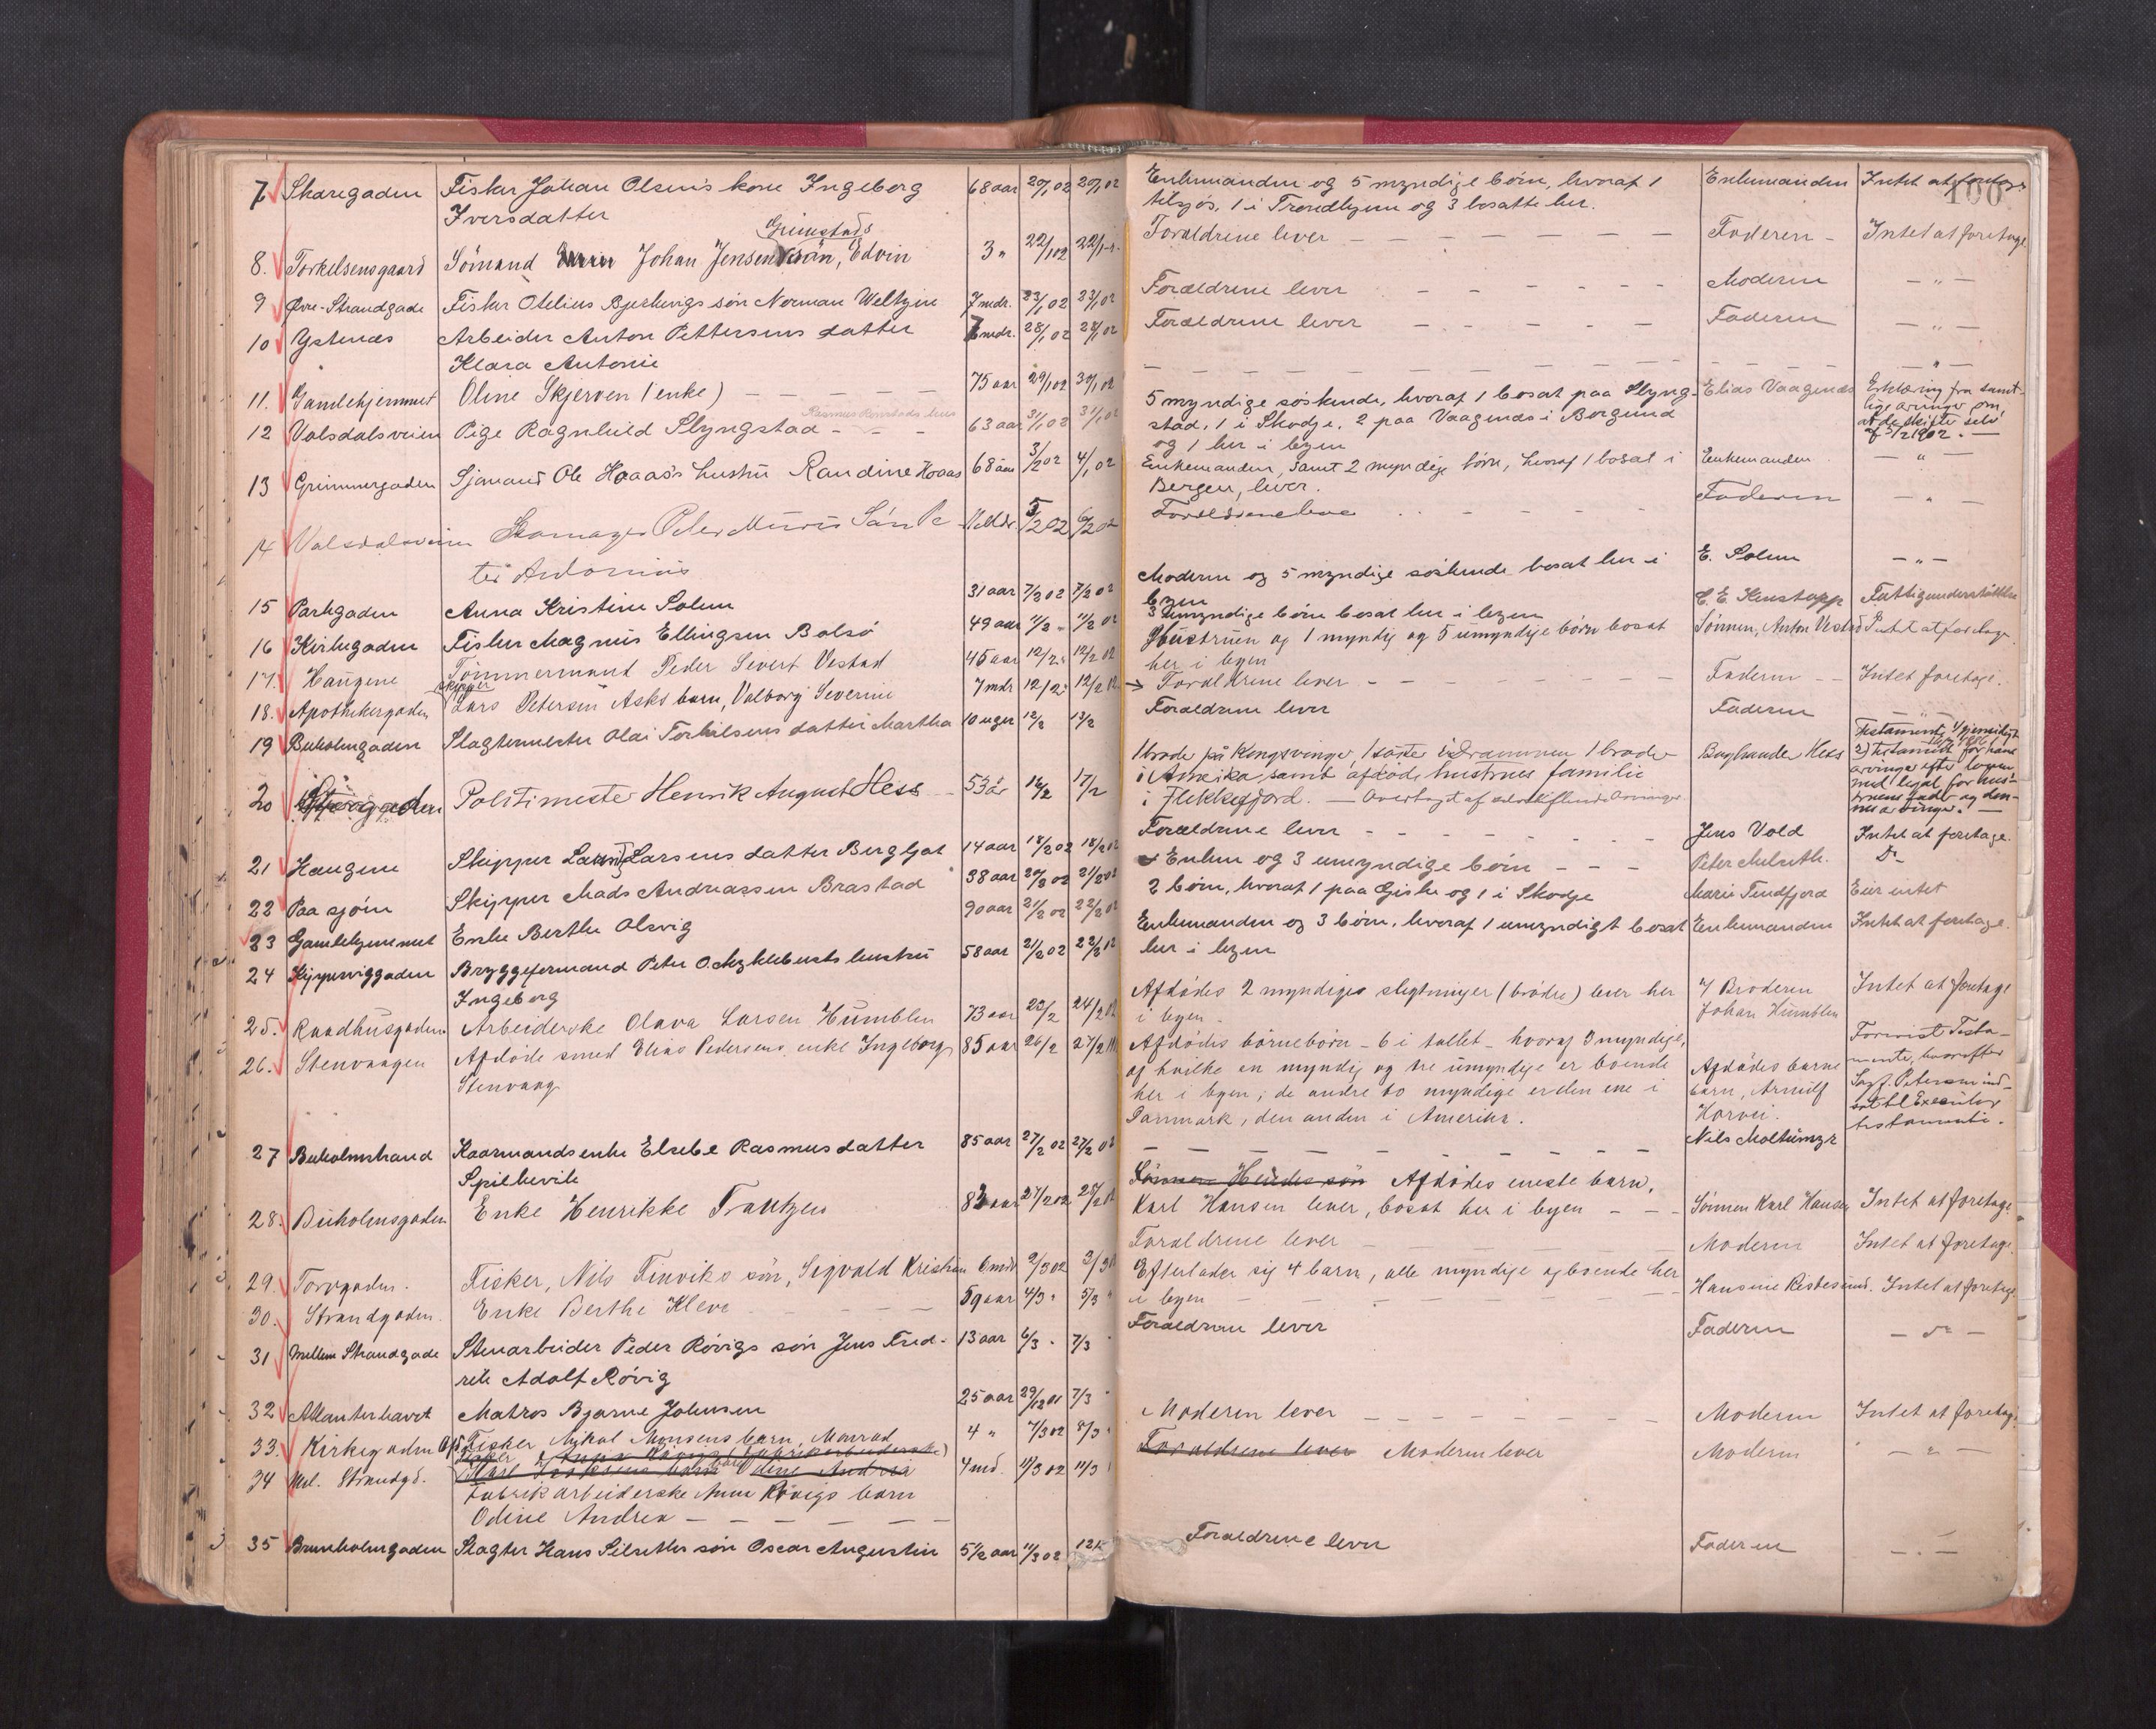 100
7 Skaregaden Fisker Johan Olsen's kone Ingeborg 68 aar 20/1 02 20/1 02 Enkemanden og 5 myndige børn, hvoraf 1 Enkemanden Intet at foretage
Iversdatter tilsjøs, 1 i Trondhjem og 3 bosatte her.
Grimstads
8. Torkelsensgaard Sömand Johan Jensen sön, Edvin 3 " 22/1 02 22/1 Forældrene lever — — — Faderen - Intet at foretage
9 Øvre-Strandgade Fisker Otelius Bjerkevigs søn Norman Weltzin 7 mdr. 23/1 02 23/1 02 Forældrene lever - - - Moderen — " —
10 Ystenæs Arbeider Anton Pettersens datter mdr. 28/1 02 28/1 02 Forældrene lever - - - Faderen — " —
Klara Antonie
11. Gamlehjemmet Oline Skjerven (enke) — — — 75 aar 29/1 02 30/1 02 — — — " —
Rasmus Rønstads hus
12 Volsdalsveien Pige Ragnhild Slyngstad - - - 63 aar 31/1 02 31/1 02 5 myndige søskende, hvoraf 1 bosat paa Slyng- Elias Vaagenæs Erklæring fra samt-
stad, 1 i Skodje, 2 paa Vaagenæs i Borgund lige arvinger om,
og 1 her i byen at de skifter selv
af 5/2 1902. —
13 Grimmergaden Sjømand Ole Hoaas's hustru Randine Hoaas 68 aar 3/2 02 4/2 02 Enkemanden, samt 2 myndige børn, hvoraf 1 bosat i Enkemanden — " —
Bergen, lever.
14 Volsdalsveien Skomager Peder Muris Sön Pe 11 Mdr 5/2 02 6/2 02 Forældrene leve Faderen — " —
ter Antonius
15 Parkgaden Anna Kristine Solem 31 aar 7/2 02 7/2 02 Moderen og 5 myndige søskende bosat her i E. Solem — " —
byen
16 Kirkegaden Fisker Magnus Ellingsen Bolsø 49 aar 11/2 " 11/2 02 3 umyndige børn bosat her i byen C. E. Kenstopp Fattigunderstøttelse
17. Haugene Tömmermand Peder Sivert Vestad 45 aar 12/2 " 12/2 02 Hustruen og 1 myndig og 5 umyndige børn bosat Sønnen, Anton Vestad Intet at foretage.
her i byen
Skipper
18. Apothekergaden Lars Petersen Asks barn, Valborg Severine 7 mdr 12/2 " 12/2 02 → Forældrene lever - - - Faderen — Intet foretage.
19 Buholmgaden Slagtermester Olai Torkilsens datter Martha 10 uger 12/2 13/2 Forældrene lever Faderen — " —
20 Politimester Henrik August Hess — 53 år 16/2 17/2 1 broder på Kongsvinger, 1 söster i Drammen 1 broder Boghandler Hess Testamente 1/gjensidigt
i Amerika samt afdöde hustrues familie 2) testament for hans
i Flekkefjord. — Overtaget af selvskiftende arvinger. arvinger efter loven
med legat for hus-
truens fader og den-
nes arvinger. —
21 Haugene Skipper Larsens datter Bergljot 14 aar 18/2 02 18/2 02 Forældrene lever - - - Jens Vold Intet at foretage.
22 Paa sjøen Skipper Mads Andreassen Brastad 38 aar 20/2 02 21/2 02 Enken og 3 umyndige børn — — — Peter Melseth. Do
23 Gamlehjemmet Enke Berthe Olsvig 90 aar 21/2 02 22/2 02 2 børn, hvoraf 1 paa Giske og 1 i Skodje Marie Tindfjord Eier intet
24 Kipervikgaden Bryggeformand Peter O. Myklebusts hustru 58 aar 21/2 02 22/2 02 Enkemanden og 3 børn, hvoraf 1 umyndigt bosat Enkemanden Intet at foretage.
Ingeborg her i byen
25. Raadhusgaden Arbeiderske Olava Larsen Humblen 73 aar 23/2 24/2 02 Afdødes 2 myndige slegtninger (brødre) lever her Broderen Intet at foretage
i byen - Johan Humblen
26. Stenvaagen Afdøde smed Elias Pedersens enke Ingeborg 85 aar 26/2 27/2 Afdødes børnebørn - 6 i tallet - hvoraf 3 myndige, Afdødes barne Formist Testa-
Stenvaag af hvilke en myndig og tre umyndige er boende barn, Arnulf mente, hvorefter
her i byen; de andre to myndige er den ene i Horvei. Sagf. Petersen ind-
Danmark, den anden i Amerika. sat til Executor
testamenti.
27 Buholmstrand Kaarmandsenke Elsebe Rasmusdatter 85 aar 27/2 02 27/2 02 — — — Nils Moltumyr
Spilkevik
28. Buholmsgaden Enke Henrikke Frantzen 83 aar 27/2 02 28/2 02 Sönnen Hendes sön Afdødes eneste barn,
Karl Hansen lever, bosat her i byen — — Sønnen Karl Hansen Intet at foretage.
29. Torvgaden. Fisker, Nils Finviks sön, Sigvald Kristian 6 mdr 2/3 02 3/3 02 Forældrene lever — Moderen Intet at foretage.
30. Strandgaden. Enke Berthe Kleve — — — 59 aar 4/3 " 5/3 " Efterlader sig 4 barn, alle myndige og boende her Hansine Restesund. Intet at foretage.
i byen — — —
31 Mellem Strandgade Stenarbeider Peder Røvigs søn Jens Fred- 13 aar 6/3 " 7/3 " Forældrene lever Faderen — do —
rik Adolf Røvig
32 Atlanterhavet Matros Bjarne Johnsen 25 aar 29/12 01 7/3 " Moderen lever — — — Moderen Intet at foretage.
33. Kirkegaden Fisker Nikol Monsens barn, Monrad 4 " 7/3 02 8/3 " Forældrene lever Moderen lever Moderen — " —
34 Mel. Strandgd. Karl Odine Andrea 4 md. 11/3 02 11/3 "
Fabrikarbeiderske Anna Røvigs barn
Odine Andrea — — —
35 Brunholmgaden Slagter Hans Silseths søn Oscar Augustin 5 1/2 aar 11/3 02 12/3 Forældrene lever Faderen — " —